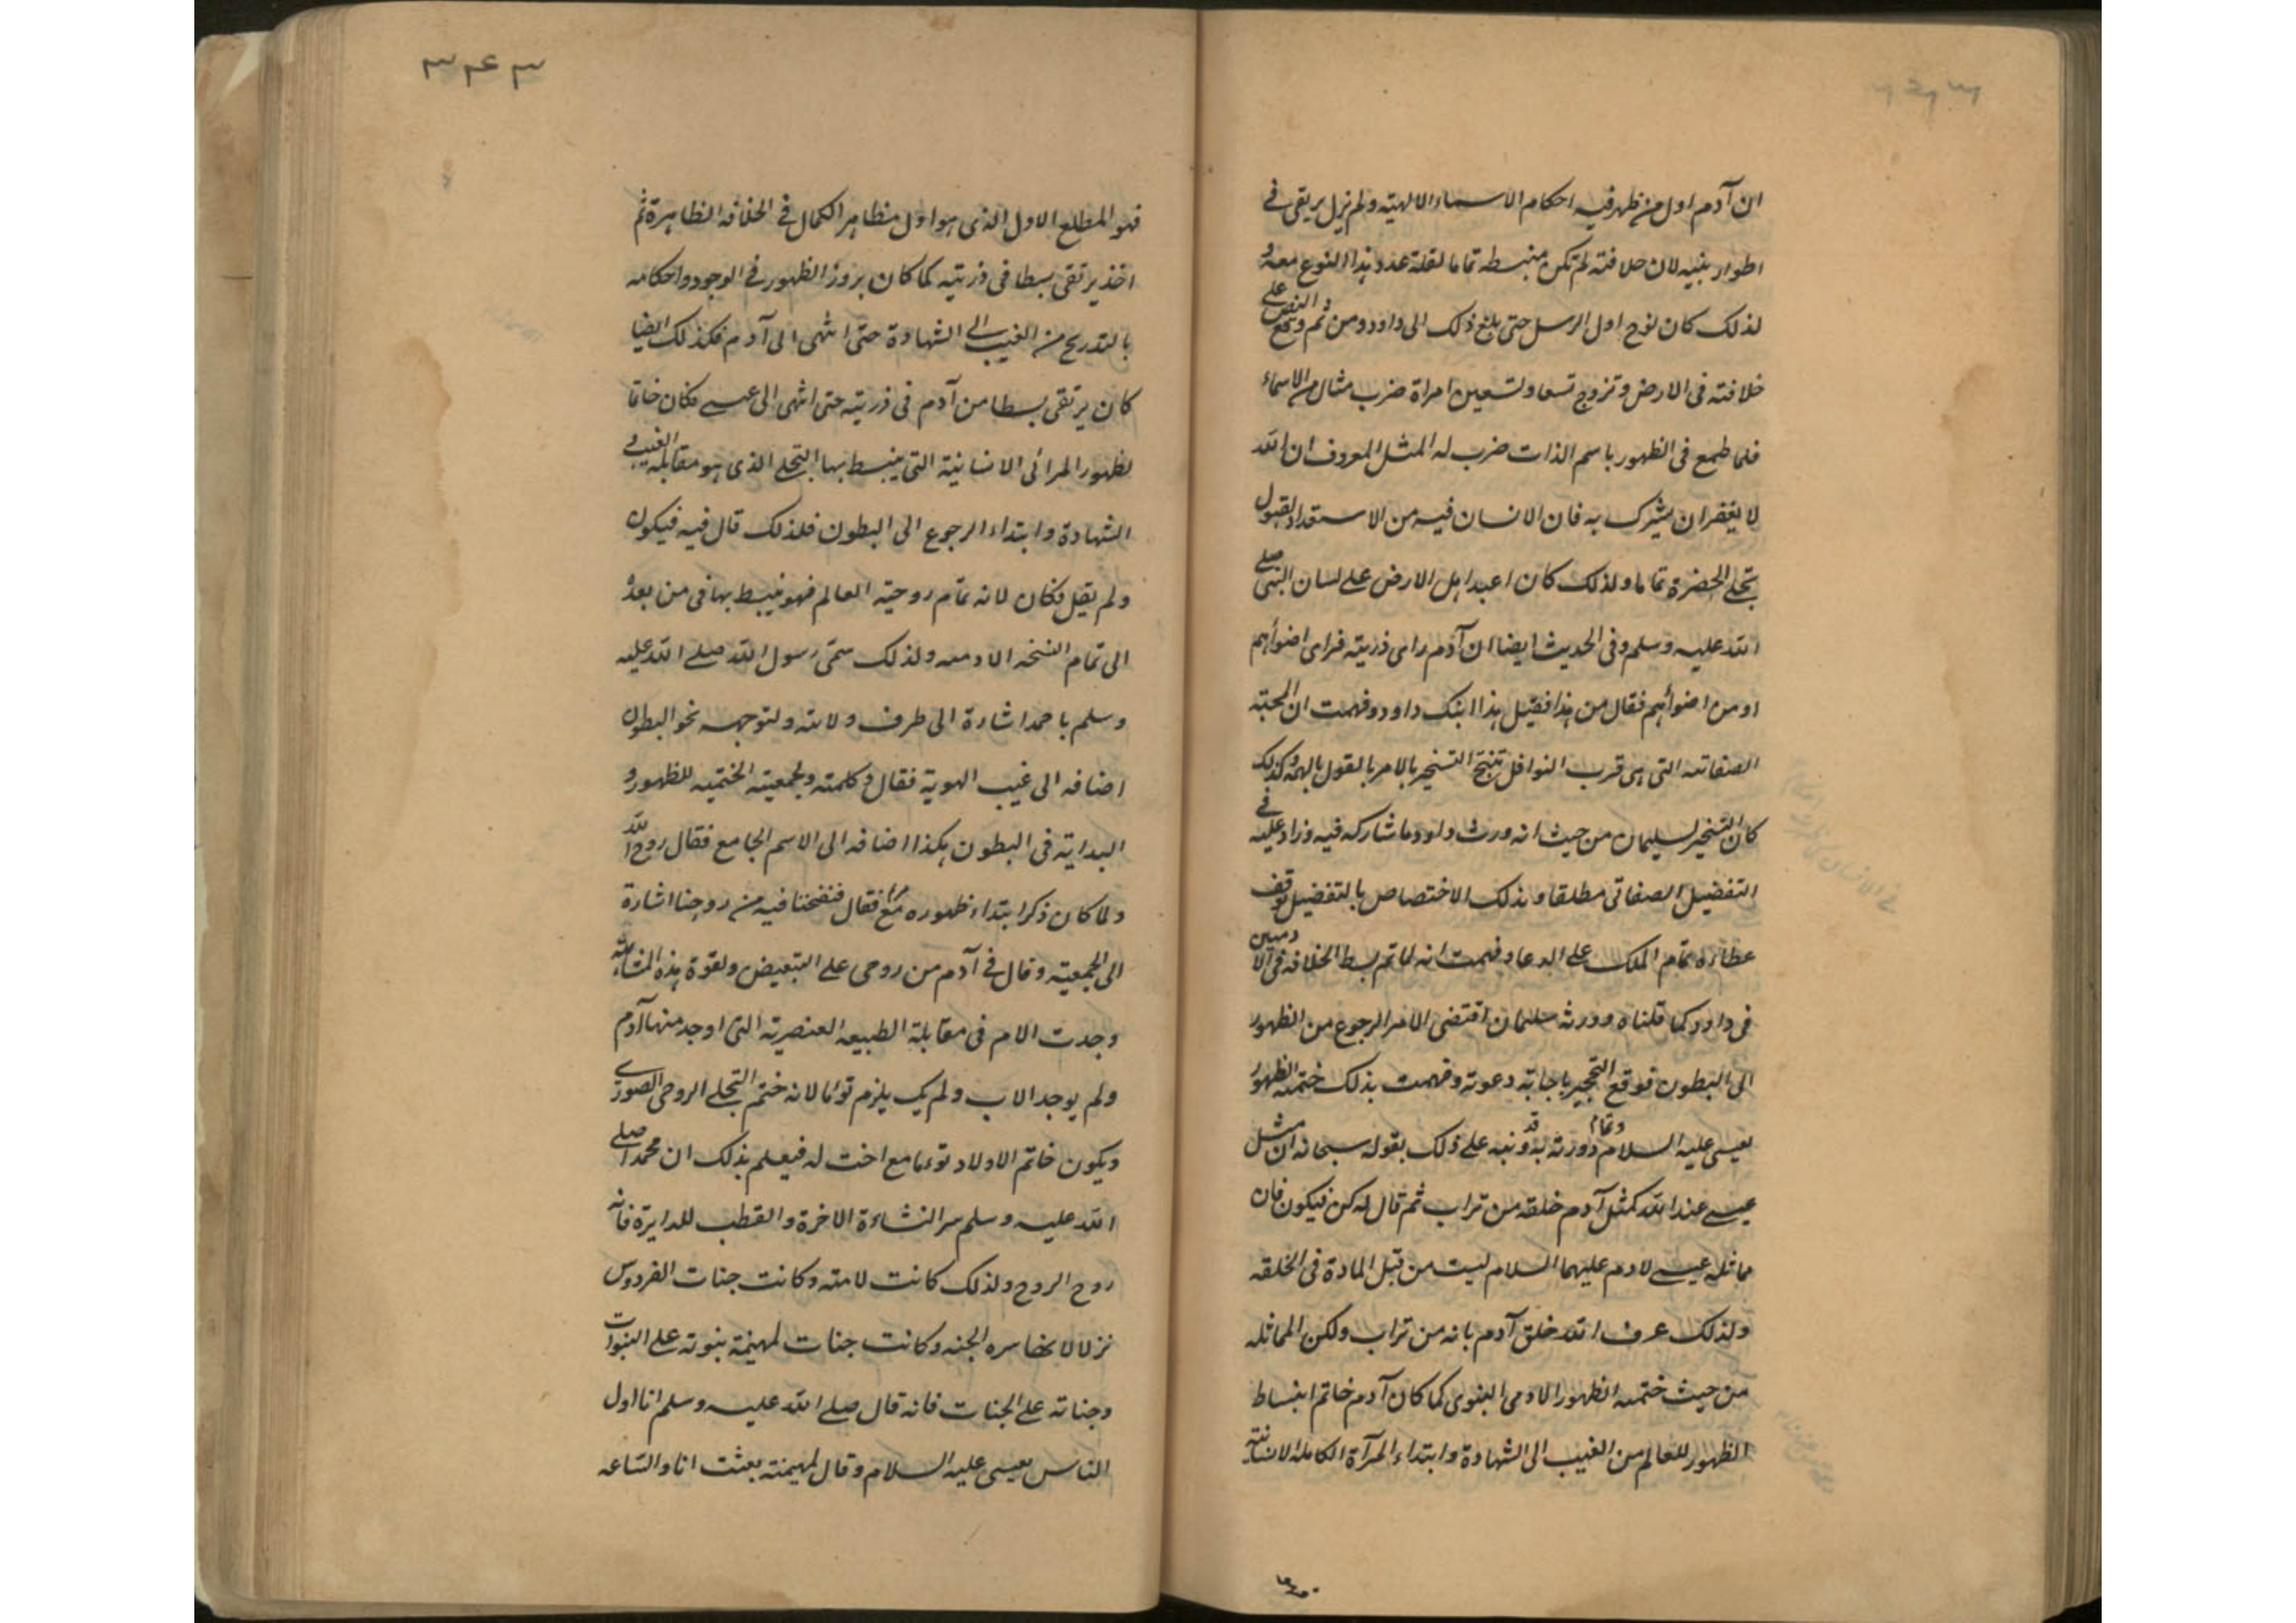 ان آدم اول من ظهر فيه احكام الاسماء الالهيته ولم يزل يرتقى فى
اطوار بنيه لان خلافته لم تكن منبسطه تماما لقلة عدد هذا النوع معه و
لذلك كان نوح اول الرسل حتى بلغ ذلك الى داود ومن ثم وقع النص على
خلافته فى الارض وتزوج تسعا وتسعين امراة ضرب مثال من الاسماء
فلما طمع فى الظهور باسم الذات ضرب له المثل المعروف ان الله
لا يغفر ان يشرك به فان الانسان فيه من الاستعداد لقبول
تجلى الحضرة تماما ولذلك كان اعبد اهل الارض على لسان النبى صلى
الله عليه وسلم وفى الحديث ايضا ان آدم راى ذريته فراى اضوأهم
او من اضوأهم فقال من هذا فقيل هذا ابنك داود وفهمت ان المحبة
الصفاتيه التى هى قرب النوافل تنتج التسخير بالامر بالقول بالهمة وكذلك
كان التسخير لسليمان من حيث انه ورث داود ما شاركه فيه وزاد عليه فى
التفضيل الصفاتى مطلقا وبذلك الاختصاص بالتفضيل توقف
عطاؤه تمام الملك على الدعاء وفهمت انه لما تم بسط الخلافه فى الادميين
فى داود كما قلناه وورثه سليمان اقتضى الامر الرجوع من الظهور
الى البطون فوقع التحجير باجابة دعوته وفهمت بذلك ختميه الظهور
بعيسى عليه السلام وتمام دورته به وقد نبه على ذلك بقوله سبحانه ان مثل
عيسى عند الله كمثل آدم خلقه من تراب ثم قال له كن فيكون فان
مماثله عيسى لادم عليهما السلام ليست من قبل المادة فى الخلقه
ولذلك عرف الله خلق آدم بانه من تراب ولكن المماثله
من حيث ختميه الظهور الادمى البنوى كما كان آدم خاتم انبساط
الظهور للعالم من الغيب الى الشهادة وابتداء المرآة الكامله الانسانيته
٣٤٣
فهو المطلع الاول الذى هو اول مظاهر الكمال فى الخلافه الظاهرة ثم
اخذ يرتقى بسطا فى ذريته كما كان بروز الظهور فى الوجود واحكامه
بالتدريج من الغيب الى الشهادة حتى انتهى الى آدم فكذلك ايضا
كان يرتقى بسطا من آدم فى ذريته حتى انتهى الى عيسى فكان خاتما
لظهور المرائى الانسانية التى ينبسط بها التجلى الذى هو مقابله الغيب و
الشهادة وابتداء الرجوع الى البطون فلذلك قال فيه فيكون
ولم يقل فكان لانه تمام روحية العالم فهو ينبسط بها فى من بعده
الى تمام النسخه الادميه ولذلك سمى رسول الله صلى الله عليه
وسلم باحمد اشارة الى طرف ولايته ولتوجهه نحو البطون
اضافه الى غيب الهوية فقال وكلمته ولجمعيته الختميه للظهور و
البداية فى البطون هكذا اضافه الى الاسم الجامع فقال روح الله
ولما كان ذكر ابتداء ظهوره مع فقال فنفخنا فيه من روحنا اشارة
الى الجمعيته وقال فى آدم من روحى على التبعيض ولقوة هذه المشابهة
وجدت الام فى مقابلة الطبيعه العنصرية التى اوجد منها آدم
ولم يوجد الاب ولم يك يلزم توأما لانه ختم التجلى الروحى الصورى
ويكون خاتم الاولاد توءما مع اخت له فيعلم بذلك ان محمدا صلى
الله عليه وسلم سر النشاءة الاخرة والقطب للدايرة فانه
روح الروح ولذلك كانت لامته وكانت جنات الفردوس
نزلا لا سره الجنه وكانت جنات لمهيمنة بنوته على النبوات
وجناته على الجنات فانه قال صلى الله عليه وسلم انا اول
الناس بعيسى عليه السلام وقال لمهيمنته بعثت انا والساعه